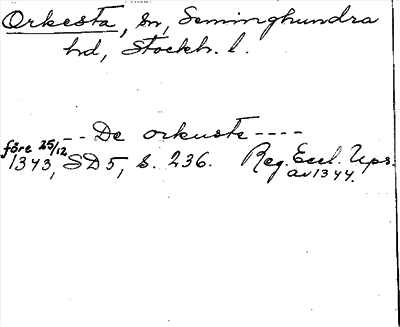 Orkesta, sn, Seminghundra
hd, Stockh. l.
-- De orkuste ----
före 25/12
1343, SD 5, s. 236. Reg. Eccl. Ups.
av 1344.